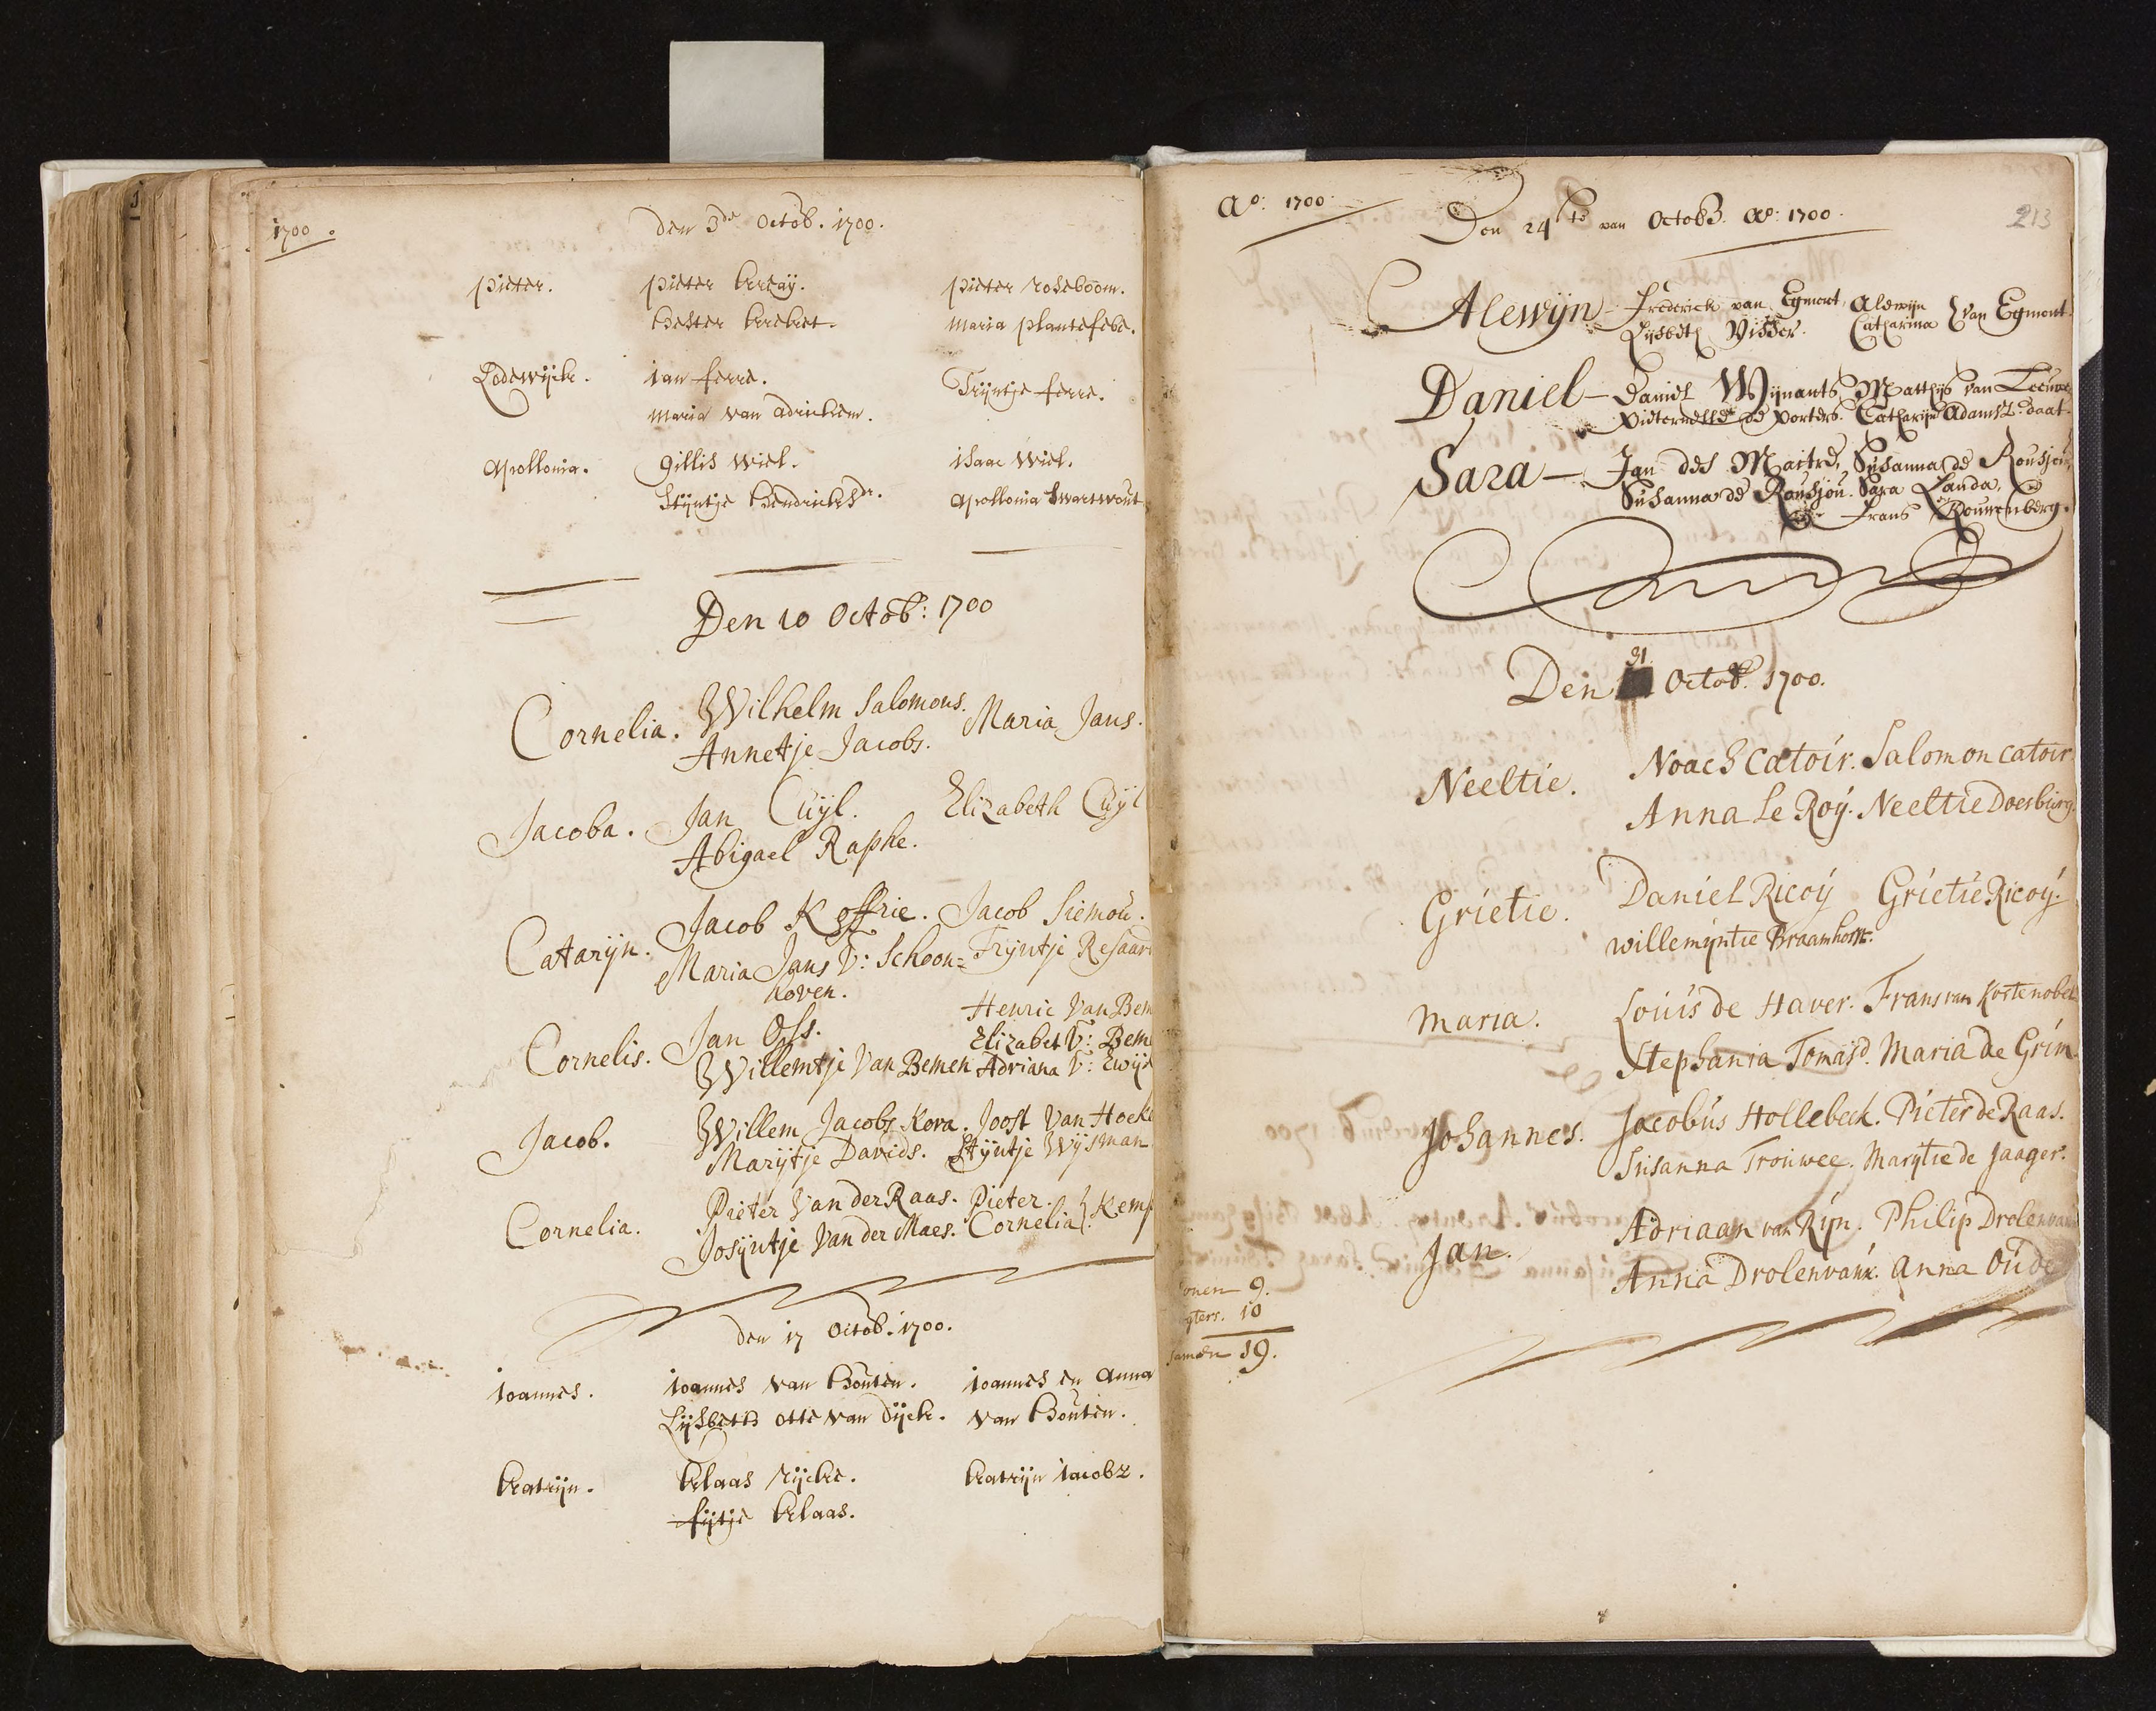 1700.
den 3de Octob. 1700.
pieter. pieter kreaÿ. pieter roseboom.
hester kreket. maria plantefebe.
Lodewijck. ian ferre. Trijntje ferre.
maria van adrichem.
apollonia. gillis wiel. isaac wiel.
Stijntje hendricks dr. apollonia swartwout
Den 10 Octob: 1700
Cornelia. Wilhelm Salomons. Maria Jans.
Annetje Jacobs.
Jacoba. Jan Cuÿl. Elizabeth Cuÿl
Abigael Raphe.
Catarijn. Jacob Koffrie. Jacob Simou.
Maria Jans V: Schoon= Trijntje Resaar
hoven.
Henric Van Bem
Cornelis. Jan Oss. Elizabet V: Bem
Willemtje Van Bemen Adriana V: Ewijk
Jacob. Willem Jacobs Kora. Joost Van Hoek
Marijtje Davids. Stijntje Wijsman
Cornelia. Pieter Van der Raas. Pieter } Kemp
Josijntje Van der Maes. Cornelia
den 17 Octob. 1700.
ioannes. ioannes van houten. ioannes en anna
Lijsbeth otte van dijck. van houten.
katrijn. klaas rijcke. katrijn iacobz.
fijtje klaas.
Ao: 1700
Den 24te van Octob. Ao: 1700.
213
Alewijn - Frederick van Egmont, Alewijn } van Egmont
Lijsbeth Visser. Catharina
Daniel - Daniel Wijnants, Matthijs van Leeuwe
Pieternelle de Porters. Catharijn Adams daat.
Sara - Jan des Maitre, Susanna de Rousjou,
Susanna de Rousjou. Sara Landa,
Frans Kouwenberg.
Den 31. Octob. 1700.
Neeltie. Noach Catoir. Salomon catoir.
Anna Le Roÿ. Neeltie Doesburg.
Grietie. Daniel Ricoÿ Grietie Ricoÿ.
willemijntie Braamhorst.
Maria. Louis de Haver. Frans van Kostenobel
Stephania Tomasd. Maria de Grim
Johannes. Jacobus Hollebeek. Pieter de Raas.
Susanna Trouwee. Marijtie de Jaager.
Jan. Adriaan van Rijn. Philip Drolenvaux
Anna Drolenvaux. Anna Oude
onen 9.
gters. 10
samen 19.